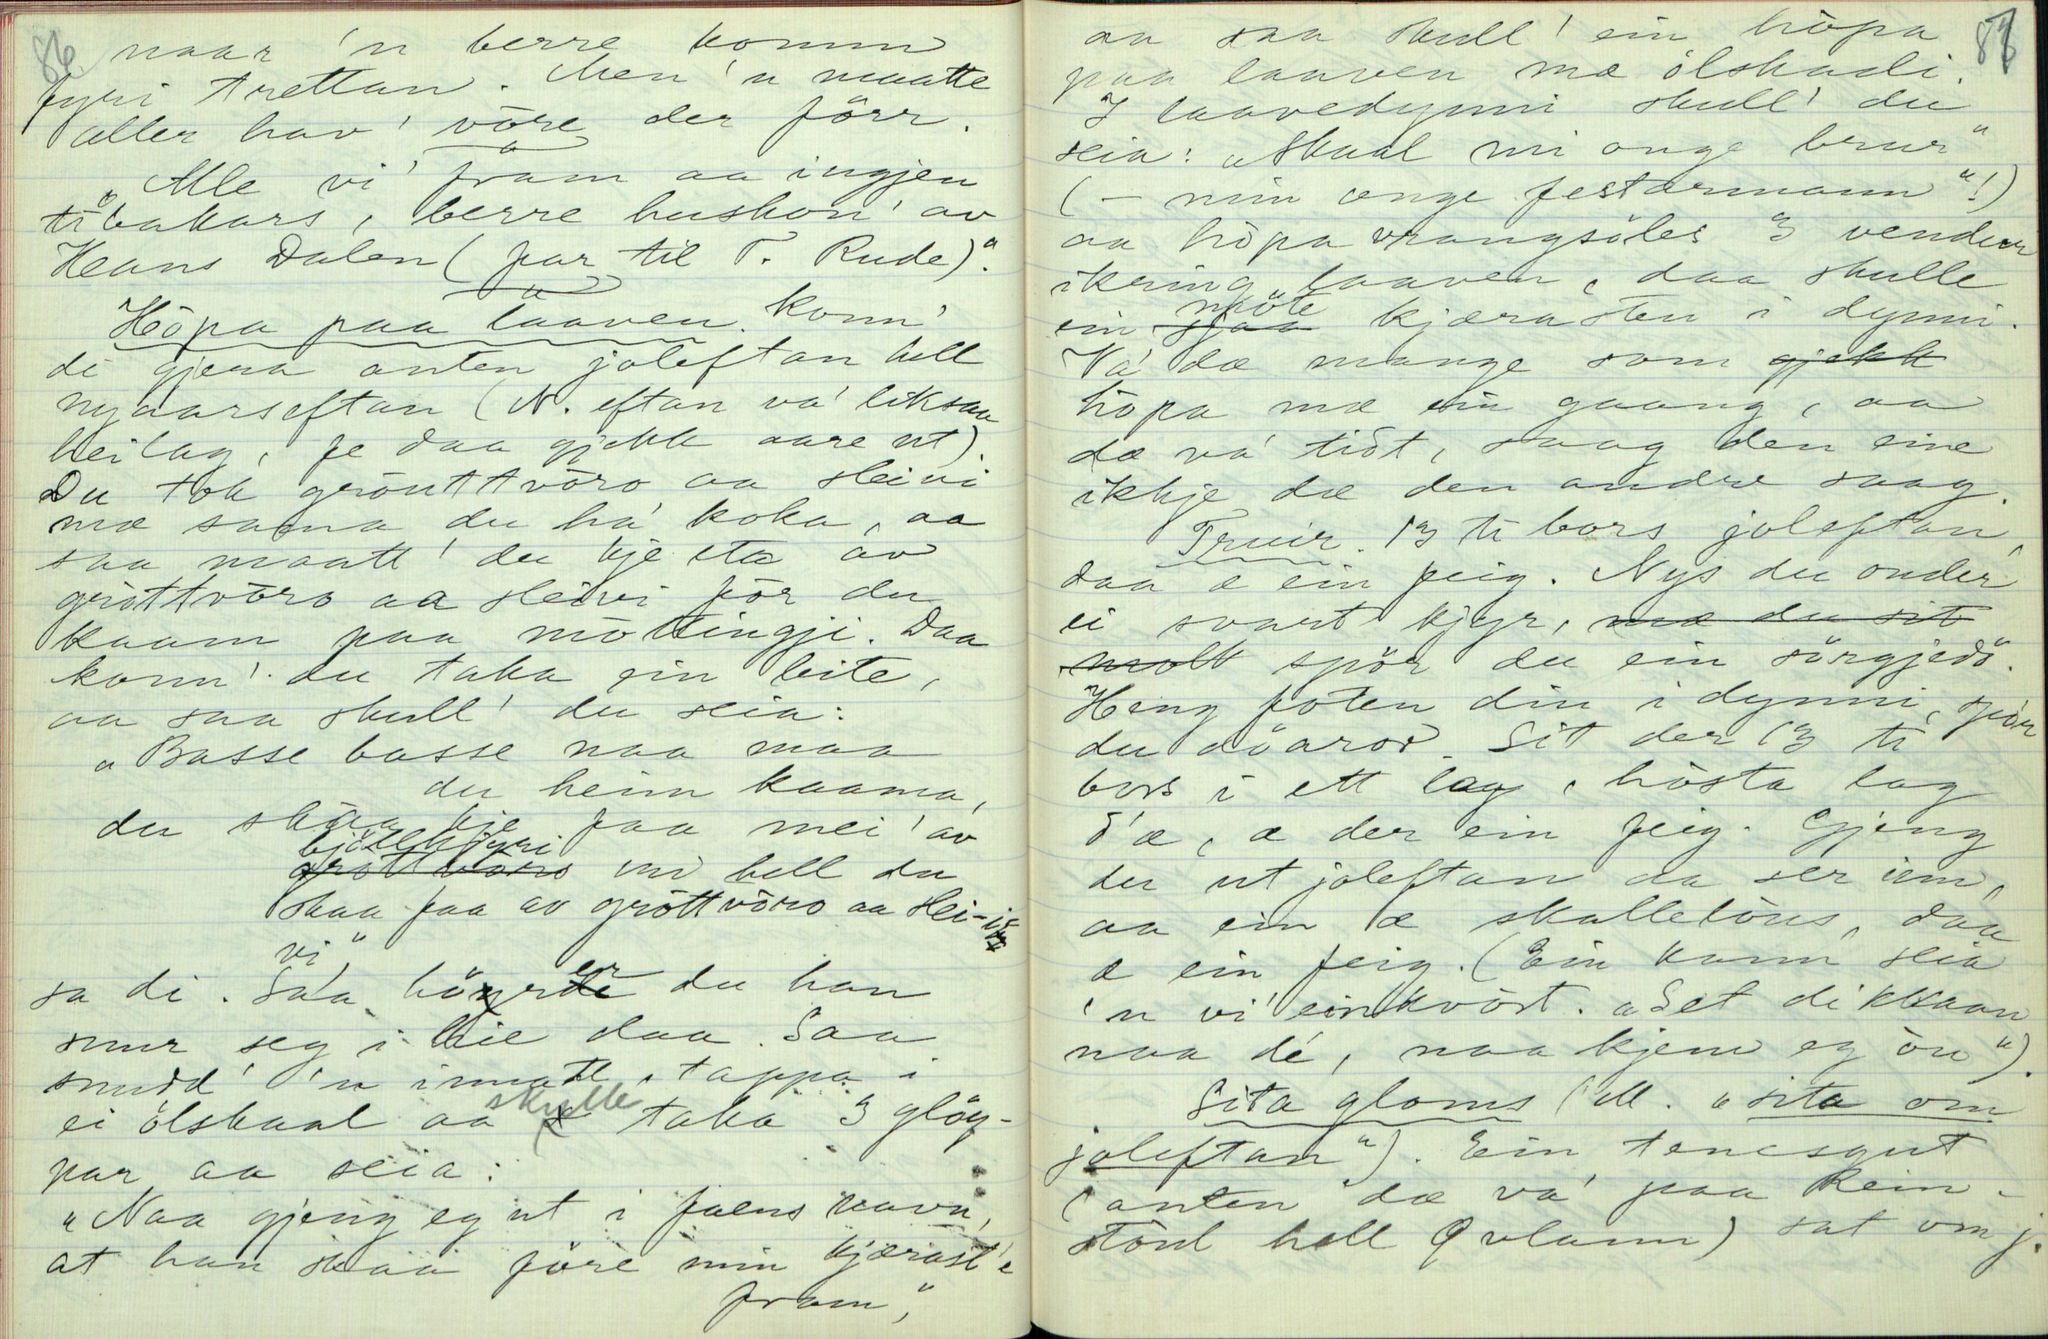 86
naar 'n berre komm
fyri trettan. Men 'n maatte
aller hav' vöre der förr.
"Alle vi' fram aa ingjen
ti bakars, berre huskon' av
Heans Dalen (far til T. Rude)".
Höpa paa laaven. konn'
di gjera anten joleftan hell
nyaarseftan (N. eftan va' liksaa
heilag, fe daa gjekk aare ut).
Du tok grönttvöro aa sleivi
mæ sama du ha' koka, aa
saa maatt' du kje eta av
gröttvöro aa sleivi för du
kaam paa mökkingji. Daa
konn' du taka ein bite,
aa saa skull' du seia:
"Basse basse naa maa
du heim kaama,
du skaa kje faa mei' av
bjöllkjyri
gröttvöro mi hell du
skaa faa av gröttvöro aa slei-
vi"
sa di. Saa höyrer du han
snur seg i hie daa. Saa
snudd' 'n innatt, tappa i
ei ölskaal aa skulle taka 3 glöy-
par aa seia:
"Naa gjeng eg ut i faens navn,
at han skaa före min kjærast'e
fram",
87
aa saa skull' ein höpa
paa laaven mæ ölskaali.
I laavedynni skull' du
seia: "Skaal mi onge brur"
(- min onge festarmann"!)
aa höpa vrangsöles 3 vender
ikring laaven, daa skulle
ein sjaa möte kjærasten i dynni.
Va' dæ mange som gjekk
höpa mæ ein gaang, aa
dæ va' tidt, saag den eine
ikkje dæ den andre saag.
Truir. 13 ti bors joleftan,
daa æ ein feig. Nys du onder
ei svart kjyr, mæ du sit
molk spör du ein sörgjedö.
Heng foten din i dynni, spör
du döarod. Sit der 13 ti
bors i ett lag, hösta lag
d'æ, æ der ein feig. Gjeng
du ut joleftan aa ser inn,
aa ein æ skallelöus, daa
æ ein feig. (Ein kann seia
'n vi' einkvört. "Set di kkraan
naa dé, naa kjem eg ön").
Sita gloms (ell. "sita om
joleftan"). Ein tenesgut
(anten dæ va' paa Rein-
stöul hell Qvlann) sat om j.